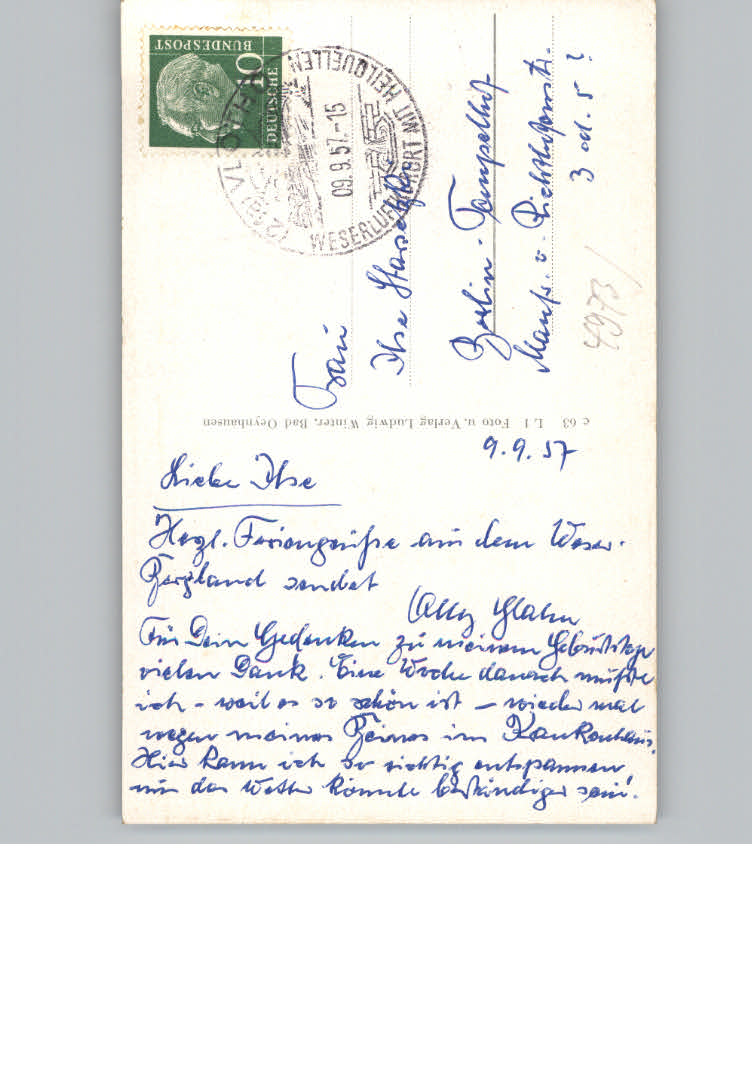 DEUTSCHE
BUNDESPOST
10
(21a) VLOTHO
09.9.57.-15
WESERLUFTKURORT MIT HEILQUELLEN
Frau
Ilse
Berlin-Tempelhof
Manfr. v. Richthofenstr.
3 od. 5?
4973/
c 63 L 1 Foto u. Verlag Ludwig Winter, Bad Oeynhausen
9.9.57
Liebe Ilse
Herzl. Feriengrüße aus dem Weser-
Bergland sendet
Für Dein Gedenken zu meinem Geburtstage
vielen Dank. Eine Woche danach mußte
ich - weil es so schön ist - wieder mal
wegen meines Beines im Krankenhaus.
Hier kann ich so richtig entspannen
nur das Wetter könnte beständiger sein!